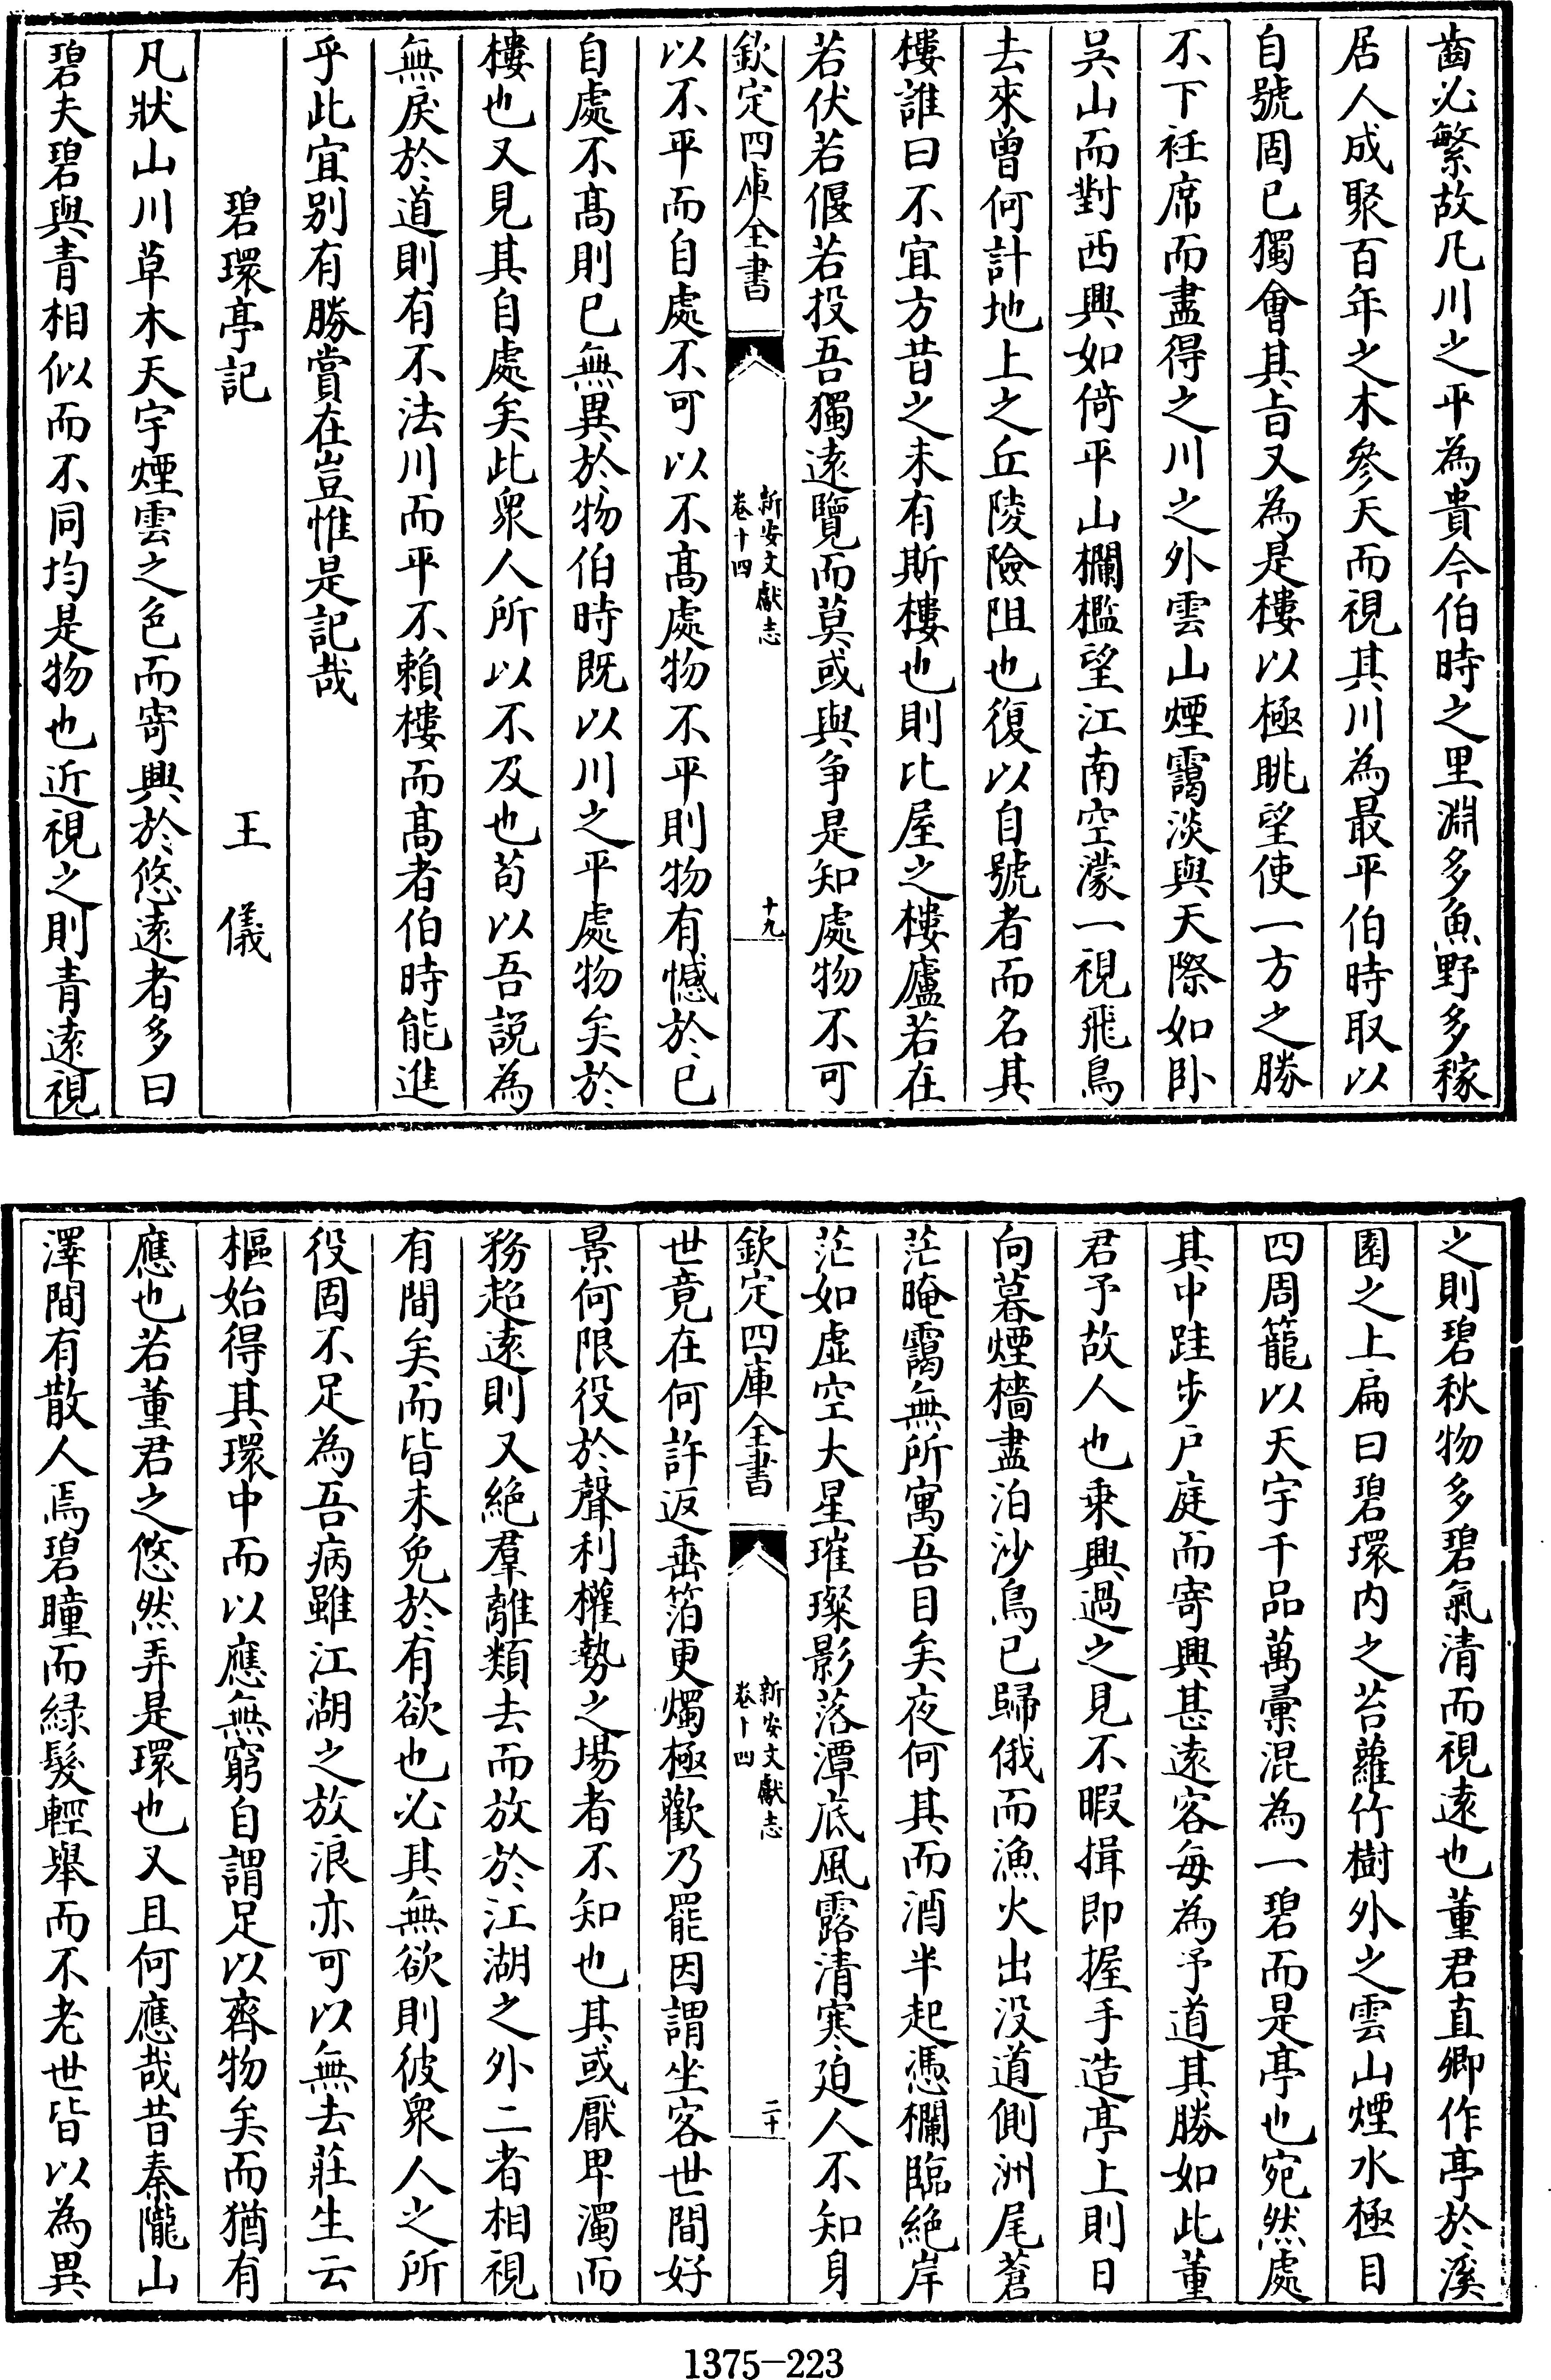 齒必繁故凡川之平為貴今伯時之里淵多魚野多稼
居人成聚百年之木參天而視其川為最平伯時取以
自號固已獨會其㫖又為是樓以極眺望使一方之勝
不下衽席而盡得之川之外雲山煙靄淡與天際如卧
吳山而對西興如倚平山欄檻望江南空濛一視飛鳥
去來曾何計地上之丘陵險阻也復以自號者而名其
樓誰曰不宜方昔之未有斯樓也則比屋之樓廬若在
若伏若偃若投吾獨逺覽而莫或與爭是知處物不可
欽定四庫全書
新安文獻志
卷十四
十九
以不平而自處不可以不髙處物不平則物有憾於已
自處不髙則已無異於物伯時既以川之平處物矣於
樓也又見其自處矣此衆人所以不及也苟以吾説為
無戾於道則有不法川而平不賴樓而髙者伯時能進
乎此宜别有勝賞在豈惟是記哉
碧環亭記　王儀
凡狀山川草木天宇煙雲之色而寄興於悠逺者多曰
碧夫碧與青相似而不同均是物也近視之則青逺視
之則碧秋物多碧氣清而視逺也董君直卿作亭於溪
園之上扁曰碧環内之苔蘿竹樹外之雲山煙水極目
四周籠以天宇千品萬彚混為一碧而是亭也宛然處
其中跬步户庭而寄興甚逺客毎為予道其勝如此董
君予故人也乗興過之見不暇揖即握手造亭上則日
向暮煙檣盡泊沙鳥已歸俄而漁火出没道側洲尾蒼
茫晻靄無所寓吾目矣夜何其而酒半起憑欄臨絶岸
茫如虚空大星璀璨影落潭底風露清寒廹人不知身
欽定四庫全書
新安文獻志
卷十四
二十
世竟在何許返垂箔更燭極歡乃罷因謂坐客世間好
景何限役於聲利權勢之場者不知也其或厭卑濁而
務超逺則又絶羣離類去而放於江湖之外二者相視
有間矣而皆未免於有欲也必其無欲則彼衆人之所
役固不足為吾病雖江湖之放浪亦可以無去莊生云
樞始得其環中而以應無窮自謂足以齊物矣而猶有
應也若董君之悠然弄是環也又且何應哉昔秦隴山
澤間有散人焉碧瞳而緑髮輕舉而不老世皆以為異
1375-223